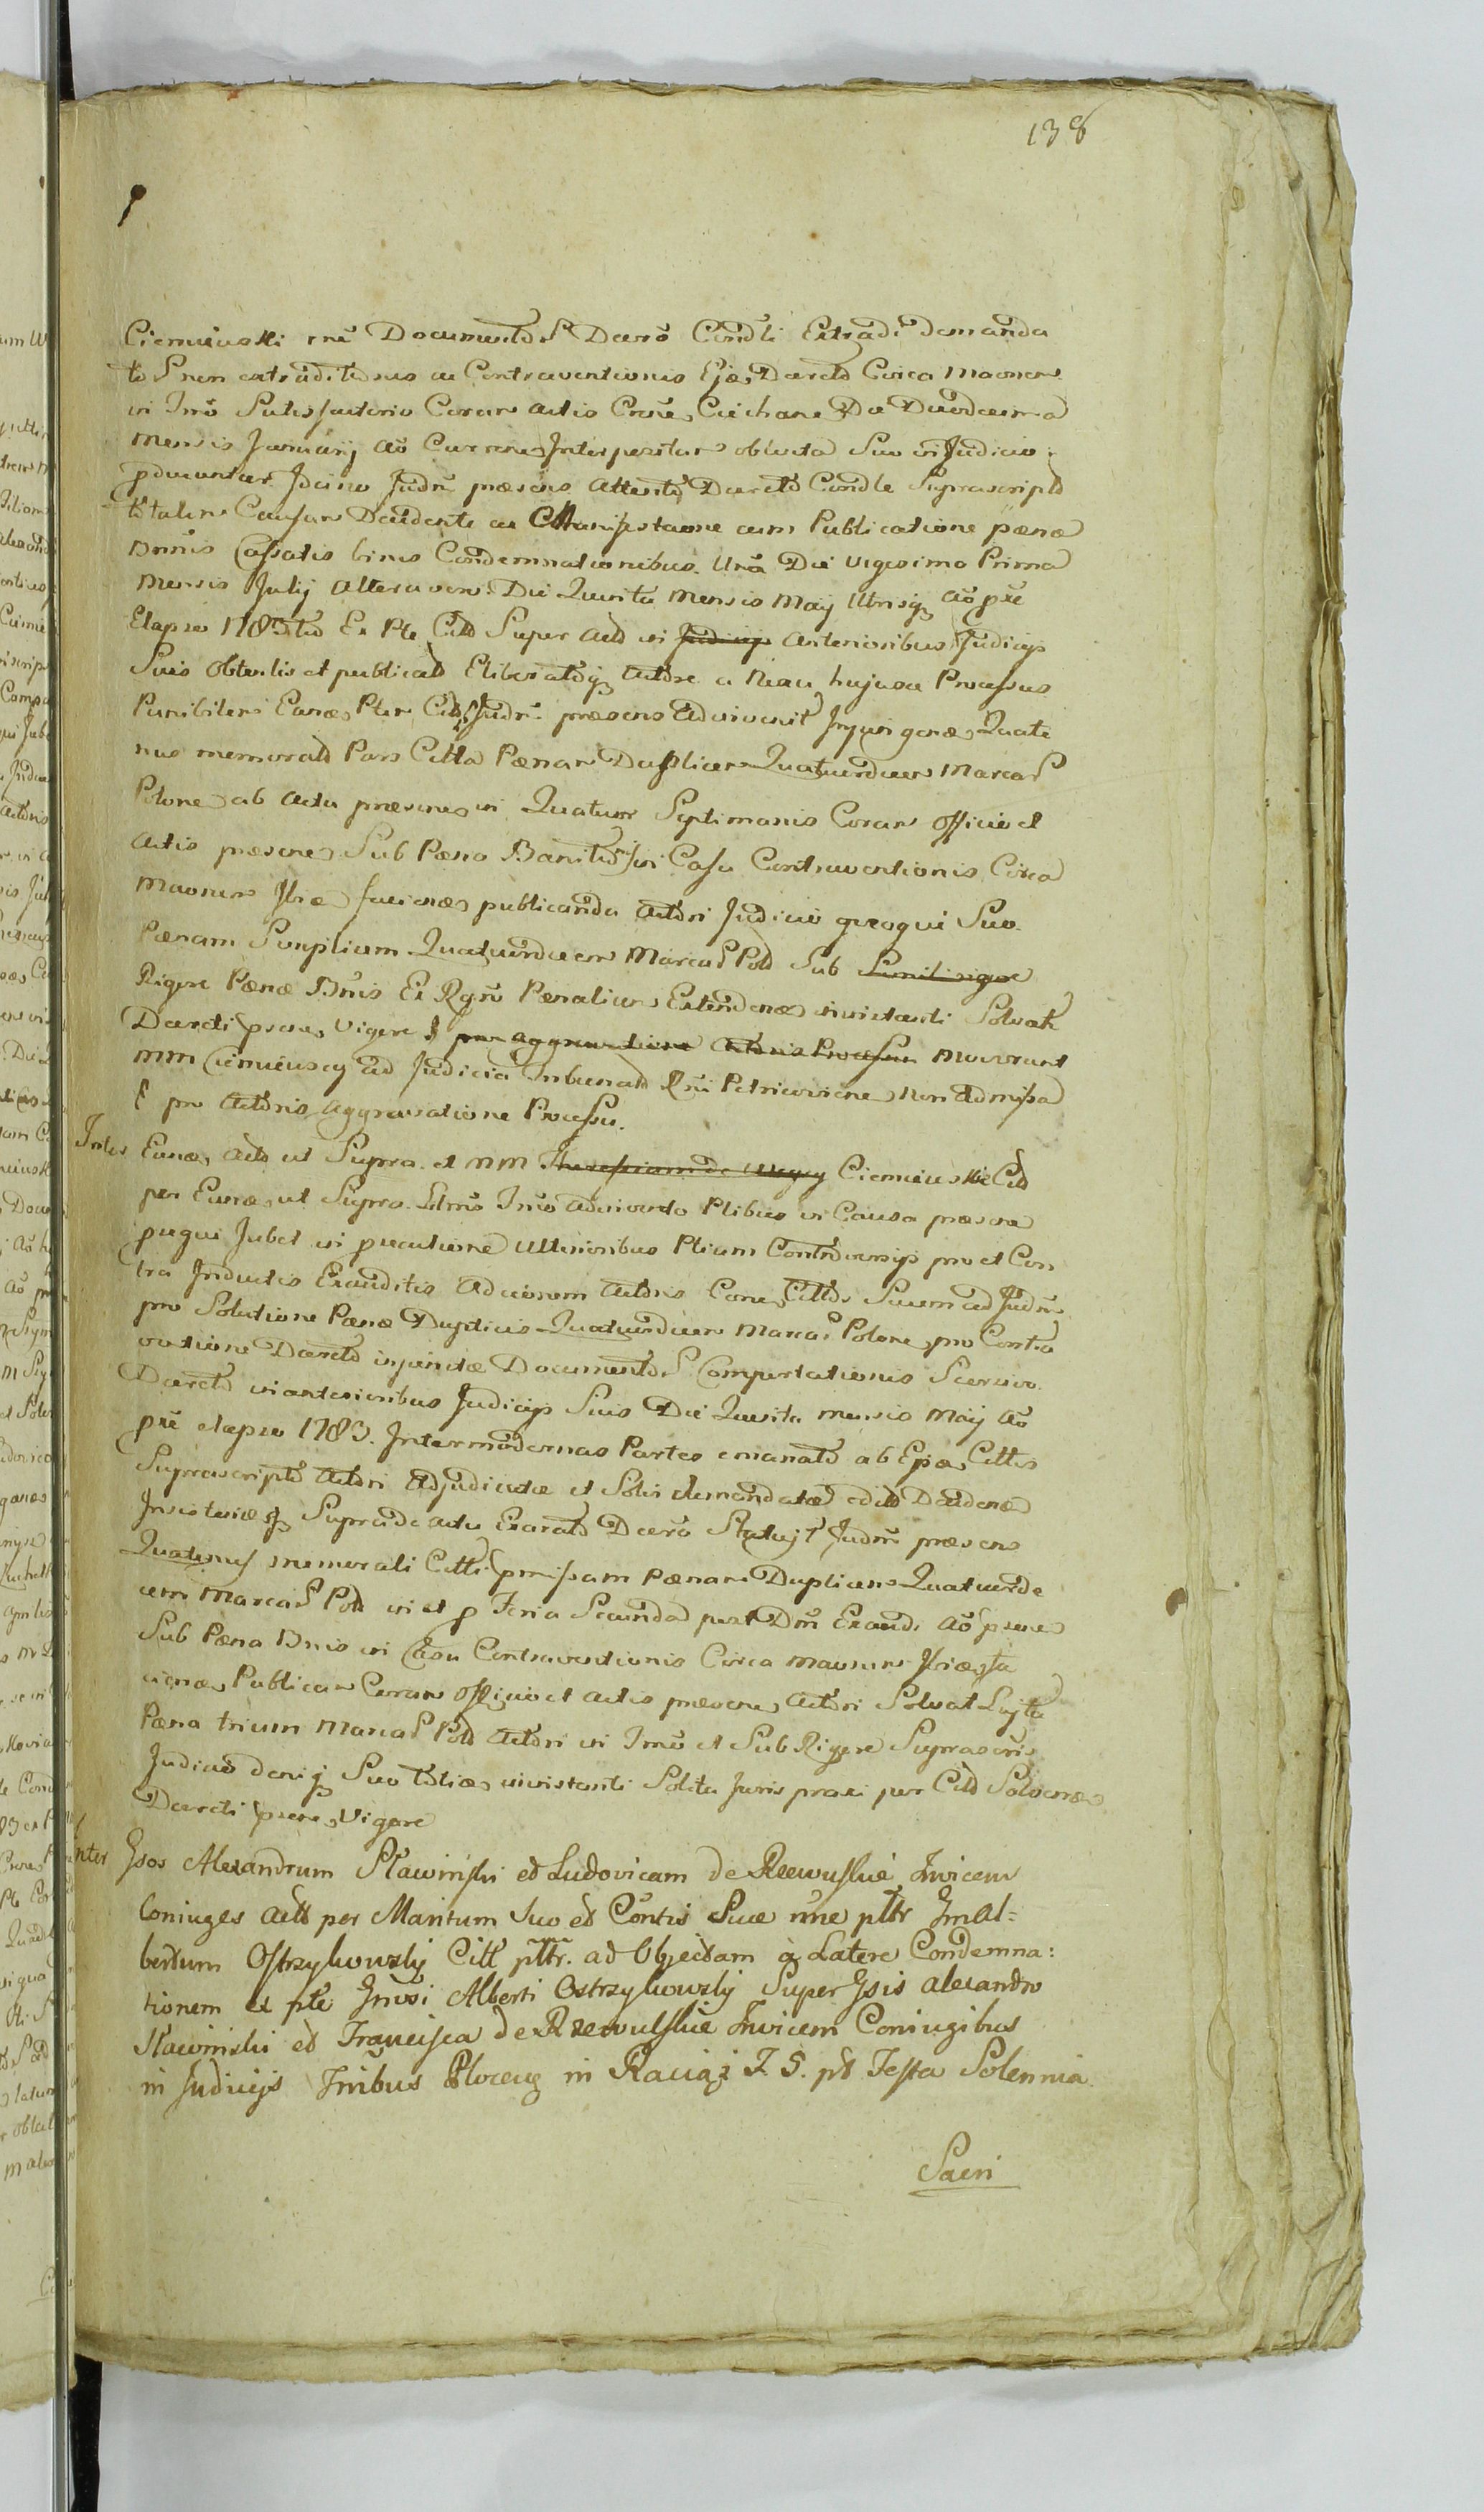 138
Ciemniewski rnē Documentor Decrō Condli Extradi demanda
to Snem extraditionis ac Contraventionis Ejō Decreto Circa Maonem
in Imō Satisfactorio Coram Actis Crnē Ciechane Die Duodecima
Mensis Januarij Aō Currenē Interpositum oblata Suo in Judicio
pducuntur Idcirco Judm præsens Attento Decreto Condle Suprascripto
totalem Causam Decidente ac Manifestaone cum Publicatione pænæ
Bnnis Cassatis binis Condemnationibus Una Die Vigesima Prima
Mensis Julij Altera vero Die Quinta Mensis Maij Utrisq Aō prē
Elapso 1783tio Ex Pte Citt Super Actt in Judicijs anterioribus Judicijs
Suis obtentis et publicatt Eliberatōq Acttore a Nexu hujusce Processus
Punibilem Eandē Ptem Citt Judm præsens adinvenit Injungendo Quate
nus memorata Pars Citta Pænam Duplicem Quatuordecem Marcar
Polone ab actu præsenē in Quatuor Septimanis Coram Officio et
Actis præsenē Sub Pæna Banitōs in Casu Contraventionis Circa
Maonem Iliæ faciendē publicanda Acttori Judicio quoqui Suo
Pænam Simplicem Quatuordecem Marcar Pol Sub Simili rigore
Rigore Pænæ Bnis Ex Rgno Pænalium Extendenē in instanti Solvat
Decreti præsenē Vigore pro aggravatione Acttoris Processu Motionem
MM Ciemniewscy ad Judicia Tribunalt Rni Petricoviene Non Admissa
pro Acttoris aggravatione Processu.
Inter Eundē Actt ut Supra et MM Theressiam de Ciemniewskie Citt
per Eundē ut Supra Litmō Imō adinvento Ptibus in Causa præsenē
pcqui Jubet in pcutione Ulterioribus Ptium Controversijs pro et Con
tra Inductis Exauditis Ad cionem Acttoris Cone Cittos Suum ad Judm
pro Solutione Pænæ Duplicis Quatuordecem Marcar Polone pro Contra
ventione Decreto injunctæ Documentor Comportationis Secundo
Decreto in anterioribus Judicijs Suis Die Quinta Mensis Maij Aō
prē elapso 1783. Inter modernas Partes emanato ab Ejsdē Cittis
Suprascripto Acttori Adjudicatæ et Solvi demandatæ edito Decidendo
Insistendoq Supra de actu Exarato Decrō Statuit Judm præsens
Quatenus memorati Citti pmissam Pænam Duplicem Quatuorde
cem Marcar Pol in et p Feria Secunda post Dm Exaudi Aō præsenē
Sub Pæna Bnis in Casu Contraventionis Circa Maonem Iliæ fa
ciendē Publican Coram Officio et Actis præsenē Acttori Solvat Lujtā
Pæna trium Marcar Pol Acttori in Imō et Sub Rigore Suprascris
Judicio deniq Suo in instanti Solita Juris praxi per Citt Solvendē
Decreti præsenē Vigore
Inter Gsos Alexandrum Sławinski et Ludovicam de Rzewuskie Invicem
Coniuges Actt per Maritum Suo et Contis Suæ nne pltr Gm Al=
bertum Ostrzykowsky Citt pltr. ad Objectam a Latere Condemna:
tionem ex pte Gnosi Alberti Ostrzykowsky Super Gsis Alexandro
Sławinski et Francisca de Rzewuskie Invicem Coniugibus
in Judicijs Tribus Plocens in Raciąż F. S. pt Festa Solennia
Sacri